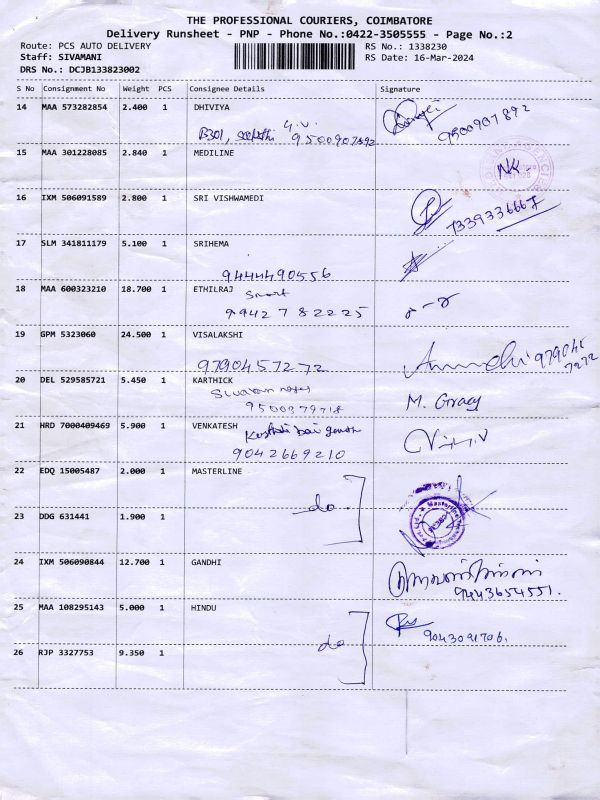 THE PROFESSIONAL COURIERS, COIMBATORE
Delivery Runsheet - PNP - Phone No.:0422-3505555 - Page No.:2
Route: PCS AUTO DELIVERY RS No.: 1338230
Staff: SIVAMANI RS Date: 16-Mar-2024
DRS No.: DCJB133823002
S No Consignment No Weight PCS Consignee Details Signature
14 MAA 573282854 2.400 1 DHIVIYA
B301, 9500907892 9500907892
15 MAA 301228085 2.840 1 MEDILINE
NK
16 IXM 506091589 2.800 1 SRI VISHWAMEDI
7339336667
17 SLM 341811179 5.100 1 SRIHEMA
9444490556
18 MAA 600323210 18.700 1 ETHILRAJ
Smart
99427 82225
19 GPM 5323060 24.500 1 VISALAKSHI
9790457272 979045
7272
20 DEL 529585721 5.450 1 KARTHICK
M. Gracy
21 HRD 7000409469 5.900 1 VENKATESH
9042669210
22 EDQ 15005487 2.000 1 MASTERLINE
do
23 DDG 631441 1.900 1
24 IXM 506090844 12.700 1 GANDHI
9443654551.
25 MAA 108295143 5.000 1 HINDU
do 9043091706.
26 RJP 3327753 9.350 1